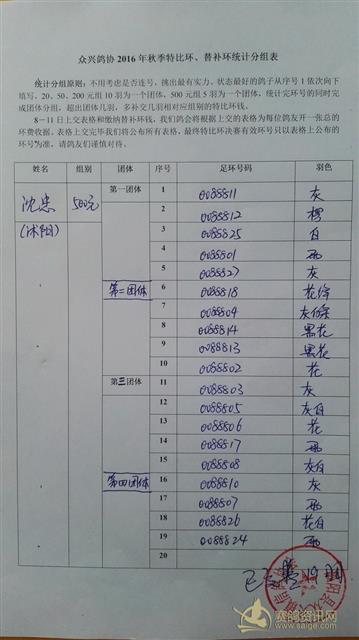 众兴鸽协 2016 年秋季特比环、替补环统计分组表
统计分组原则：不用考虑是否连号，挑出最有实力、状态最好的鸽子从序号 1 依次向下
填写。20、50、200 元组 10 羽为一个团体，500 元组 5 羽为一个团体，统计完环号的同时完
成团体分组，超出团体几羽，多补交几羽相对应组别的特比环钱。
8－11 日上交表格和缴纳替补环钱，我们鸽会将根据上交的表格为每位鸽友开一张总的
环费收据。表格上交完毕我们将公布所有表格，最终特比环决赛有效环号只以表格上公布的
环号为准，请鸽友们谨慎对待。
姓名 组别 团体 序号 足环号码 羽色
沈忠 500元 第一团体 1 0088811 灰
(沭阳) 2 0088812
3 0088825 白
4 0088801 雨
5 0088827 灰
第二团体 6 0088818 花绛
7 0088804
8 0088814 黑花
9 0088813 黑花
10 0088802 花
第三团体 11 0088803 灰
12 0088805 灰白
13 0088806 花
14 0088817 雨
15 0088808 灰白
第四团体 16 0088810 灰
17 0088807 雨
18 0088826 花白
19 0088824 雨
20
赛鸽资讯网
www.SaiGe.com